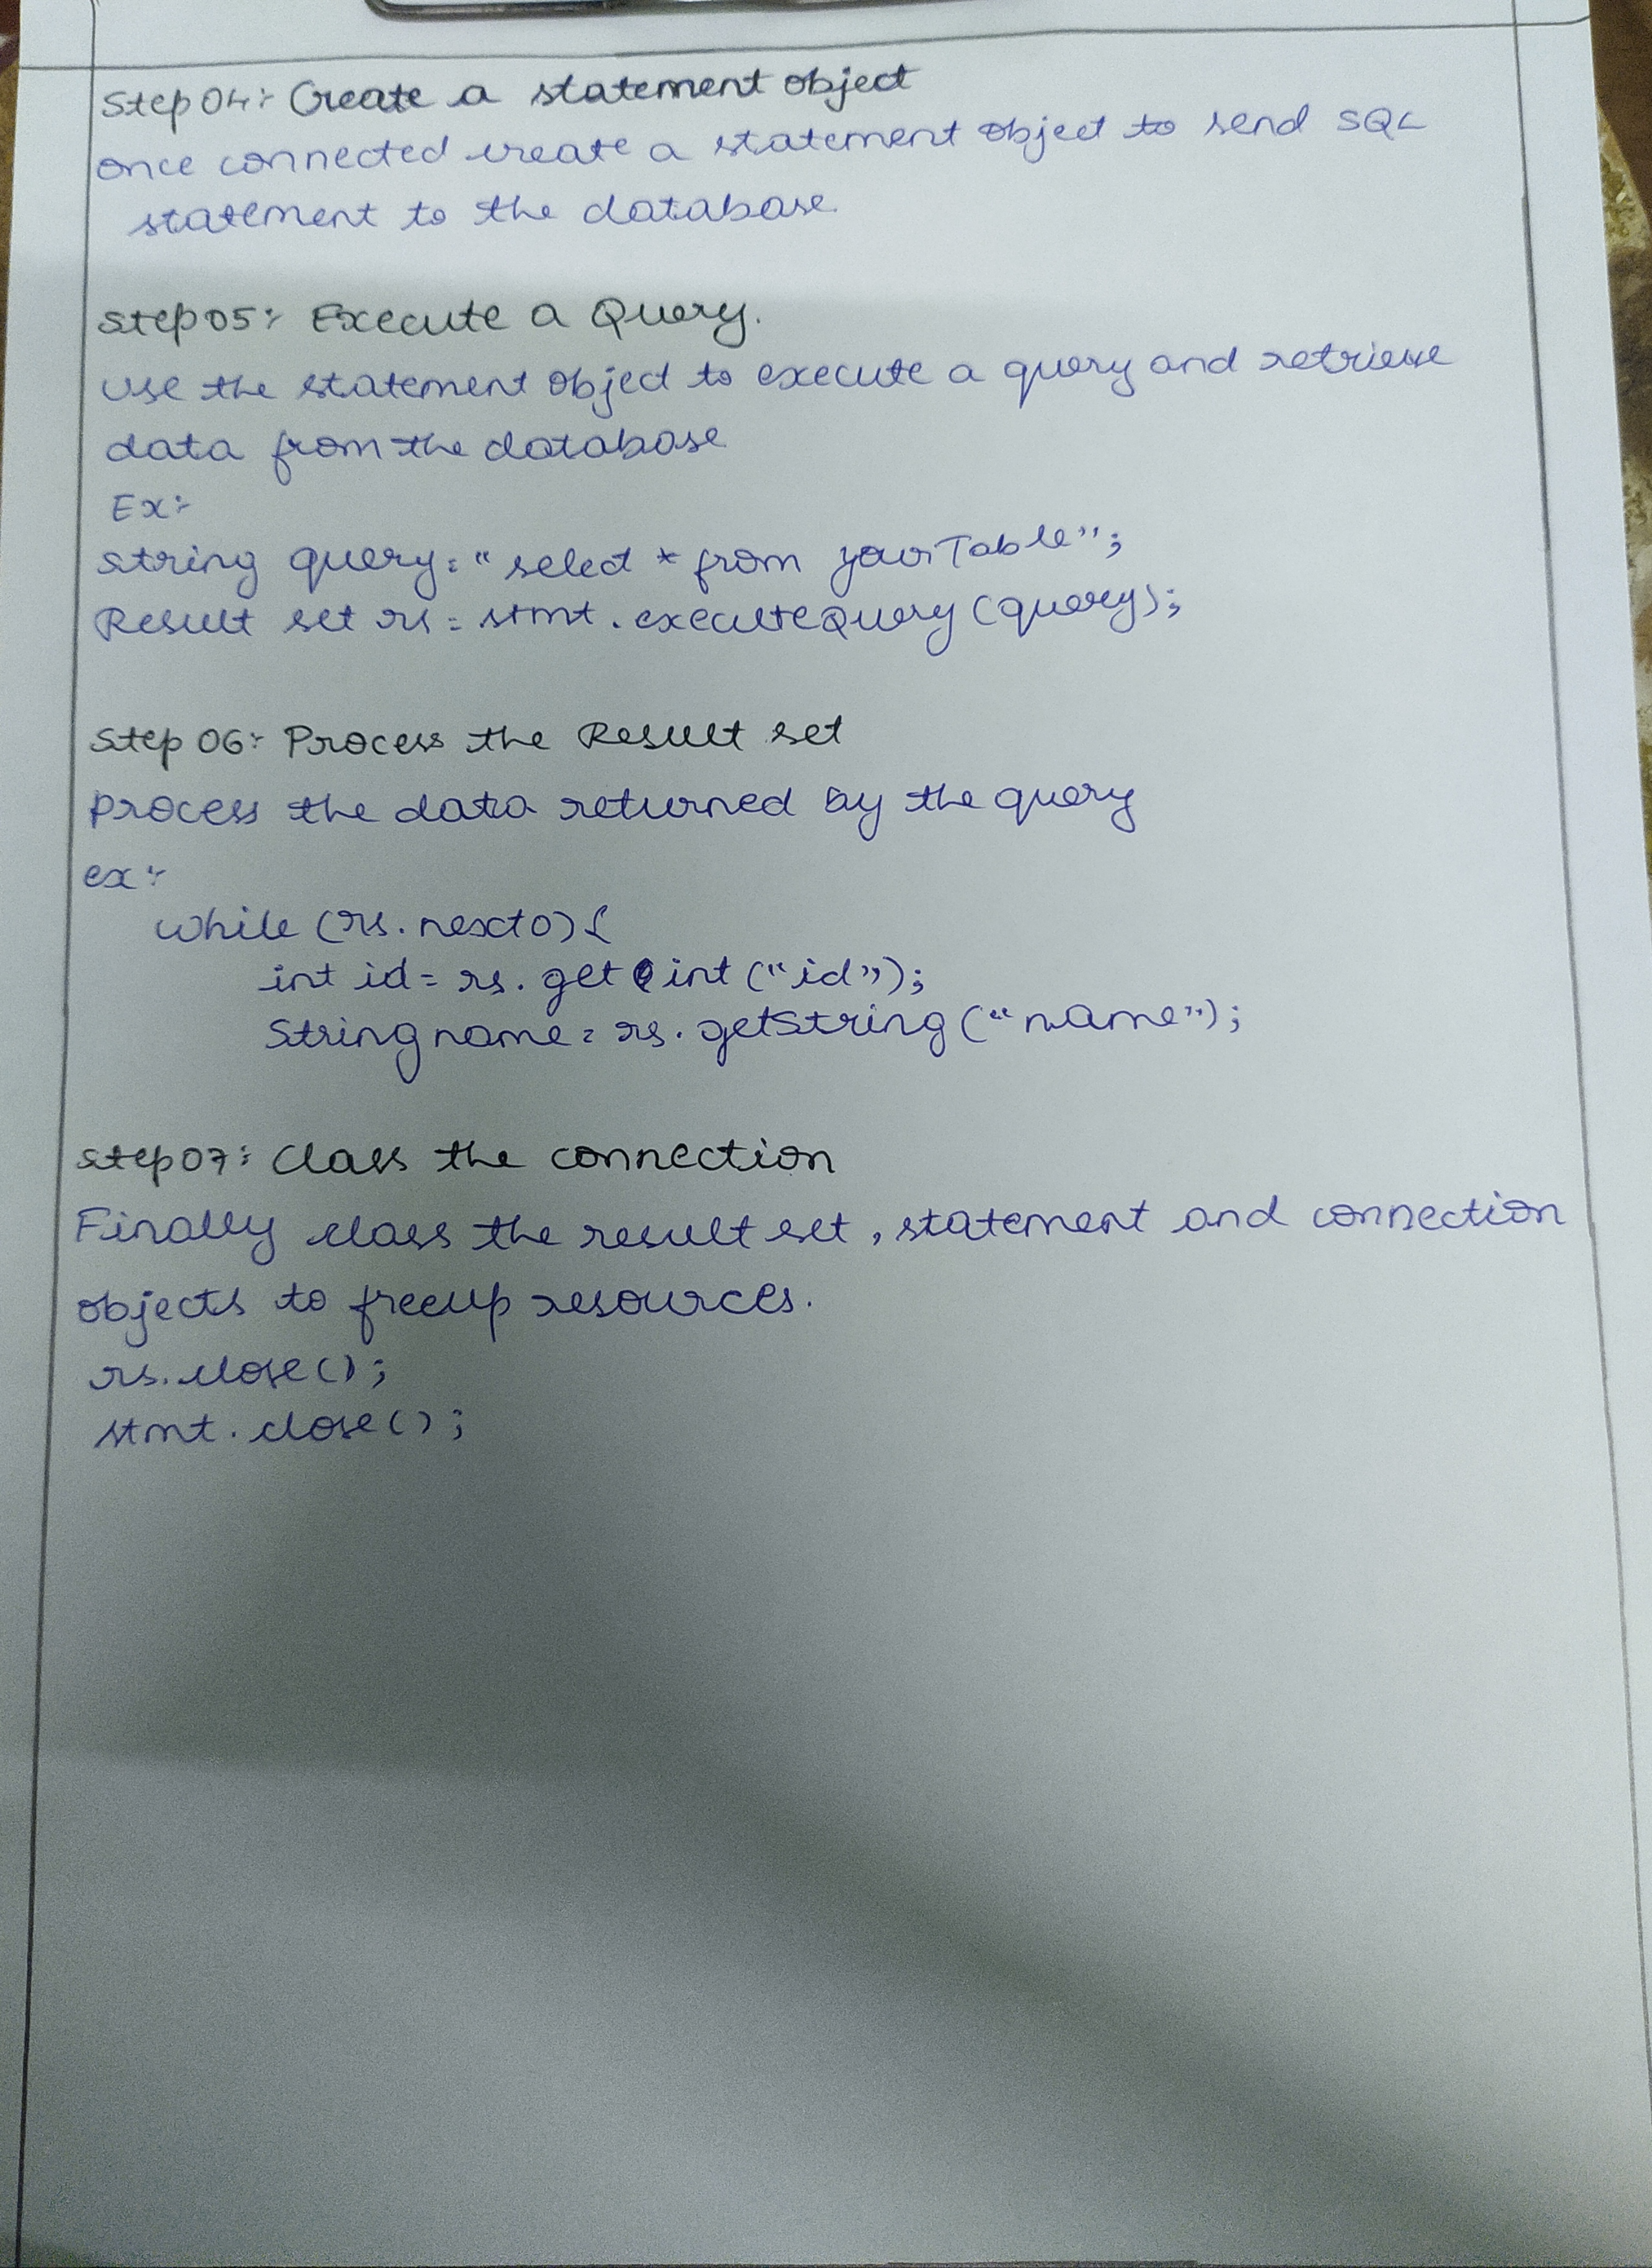 Step 04:- Create a statement object
once connected create a statement object to send SQL
statement to the database.
Step 05:- Execute a Query.
Use the statement object to execute a query and retrieve
data from the database
Ex:-
string query = "select * from yourTable";
Result set rs = stmt.executeQuery(query);
Step 06:- Process the Result set
Process the data returned by the query
ex:-
while (rs.next()) {
int id = rs. get int ("id");
String name = rs. getString ("name");
Step 07: Class the connection
Finally class the result set, statement and connection
objects to freeup resources.
rs.close();
stmt.close();